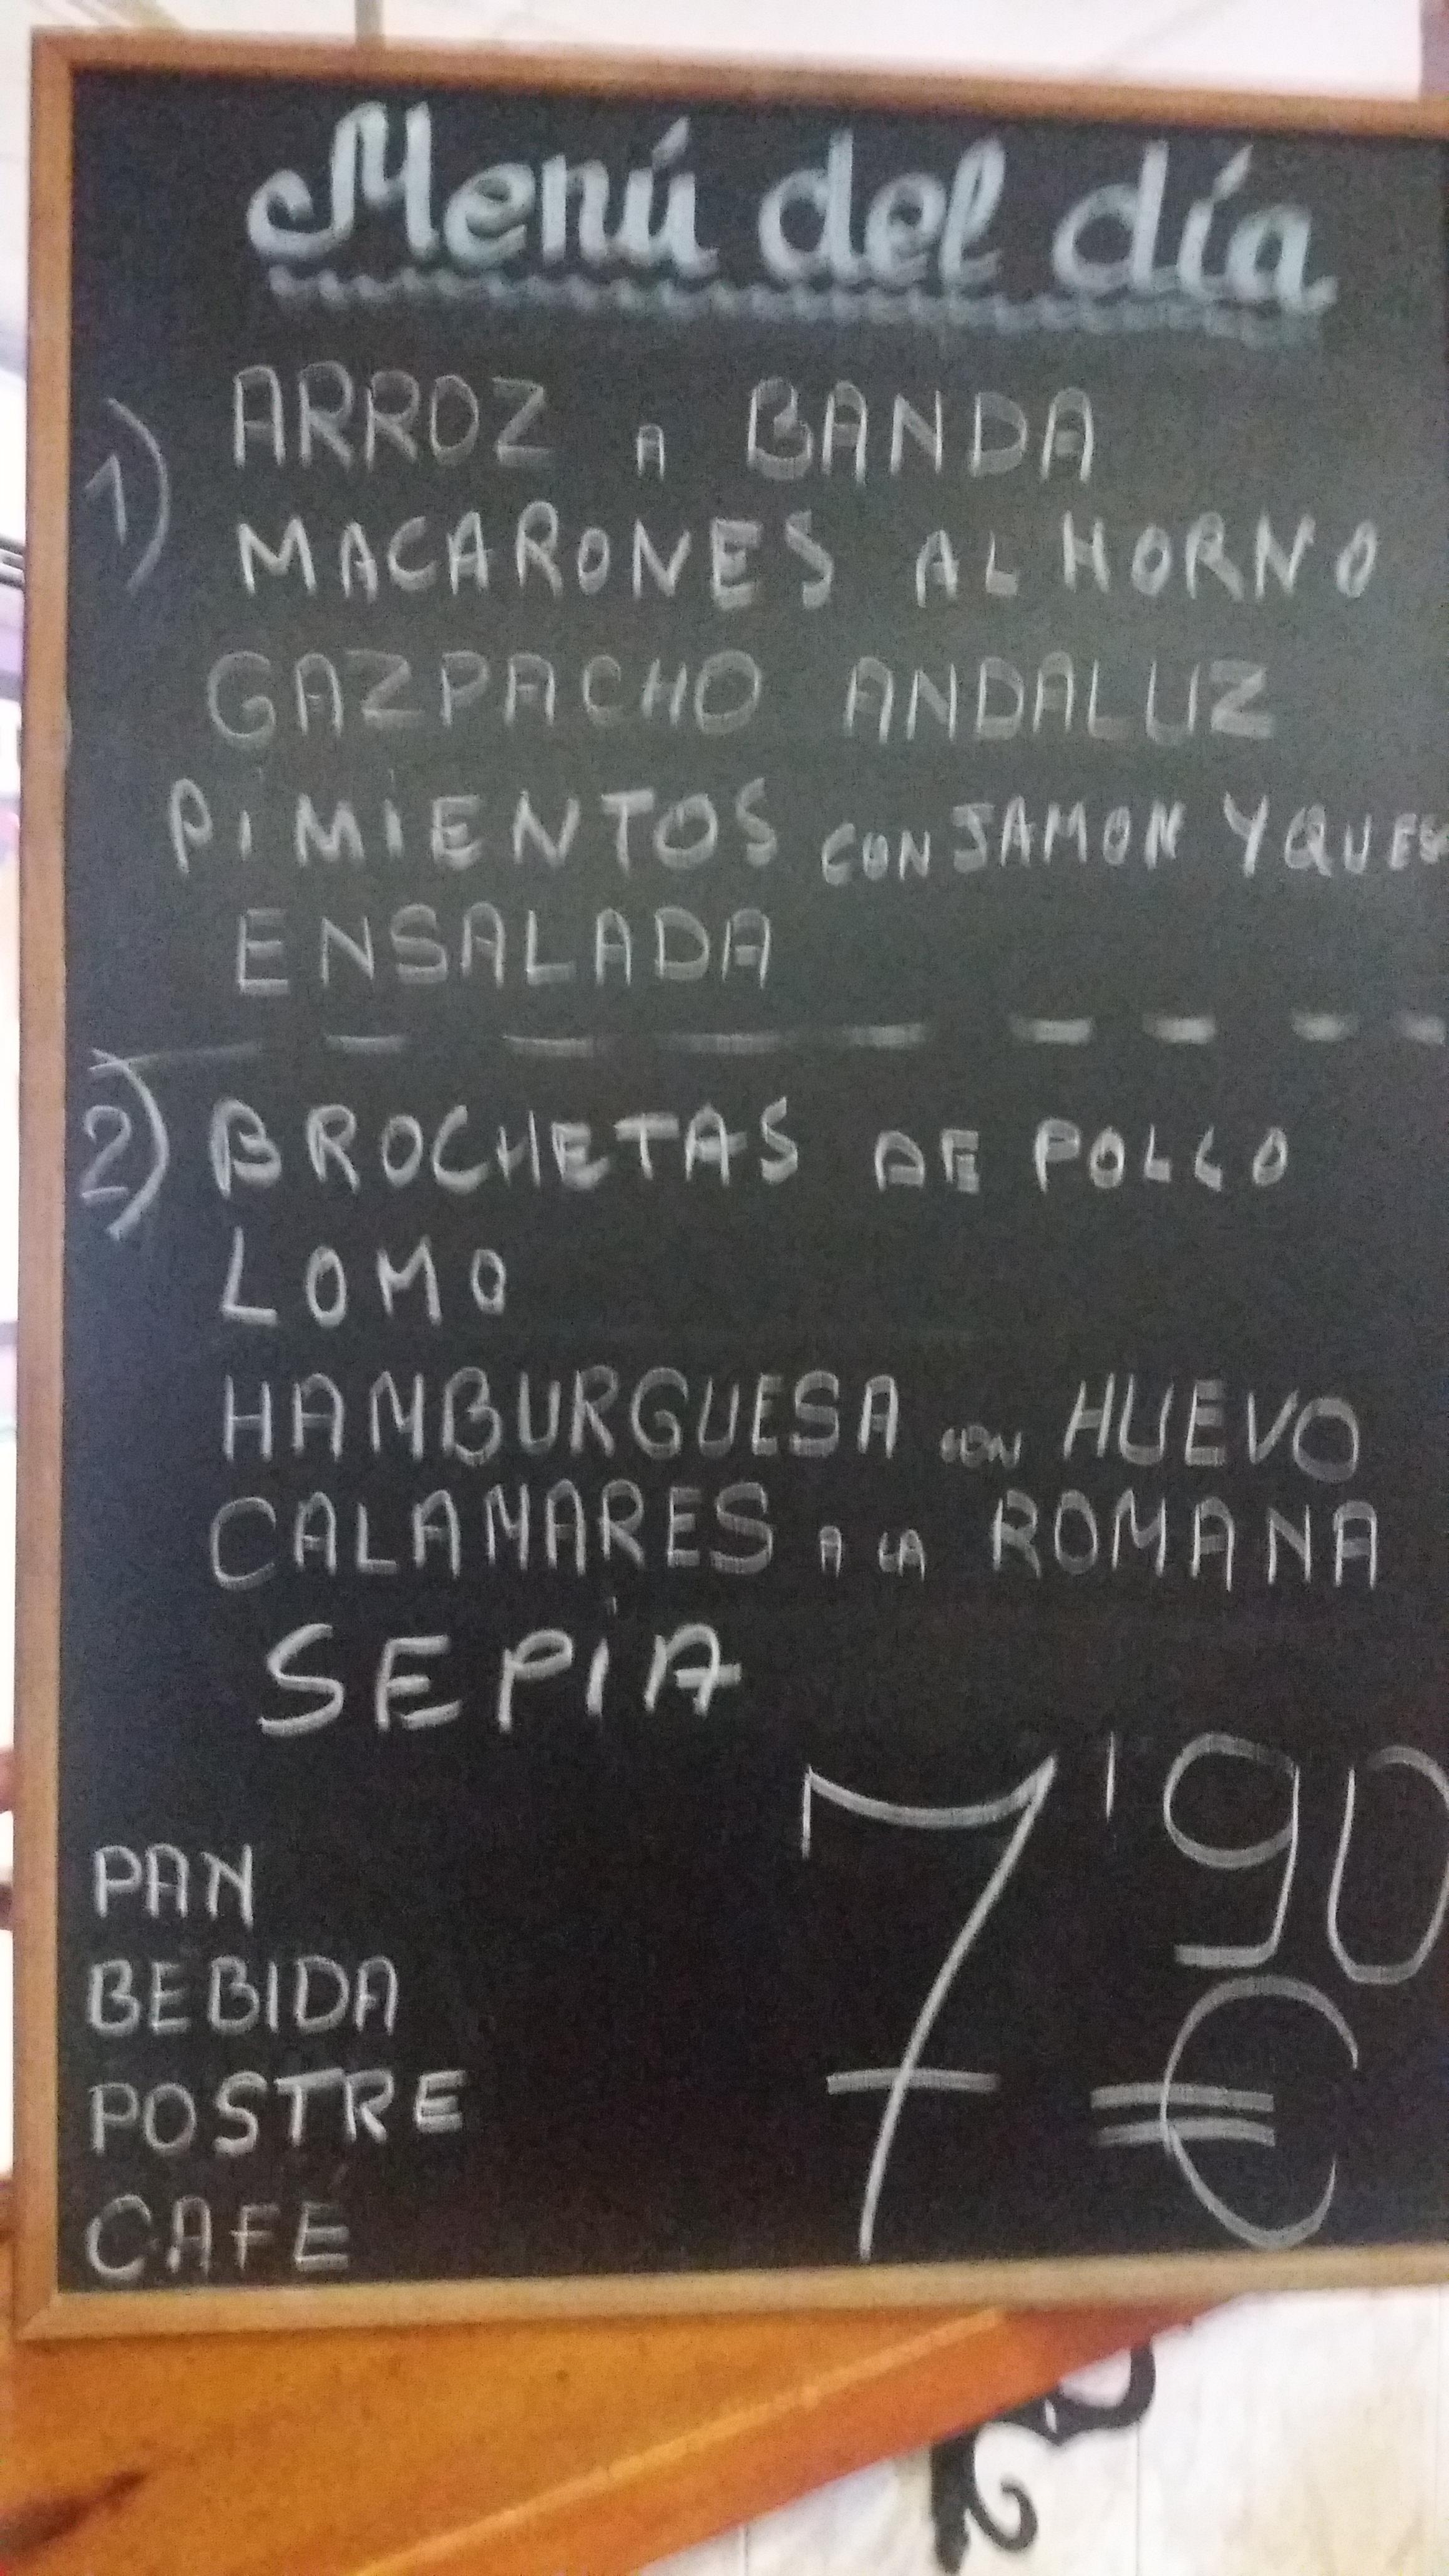 Menú del día
1) ARROZ A BANDA
MACARONES AL HORNO
GAZPACHO ANDALUZ
PIMIENTOS CON JAMON Y QUES
ENSALADA
2) BROCHETAS DE POLLO
LOMO
HAMBURGUESA CON HUEVO
CALAMARES A LA ROMANA
SEPIA
7'90
€
PAN
BEBIDA
POSTRE
CAFÉ